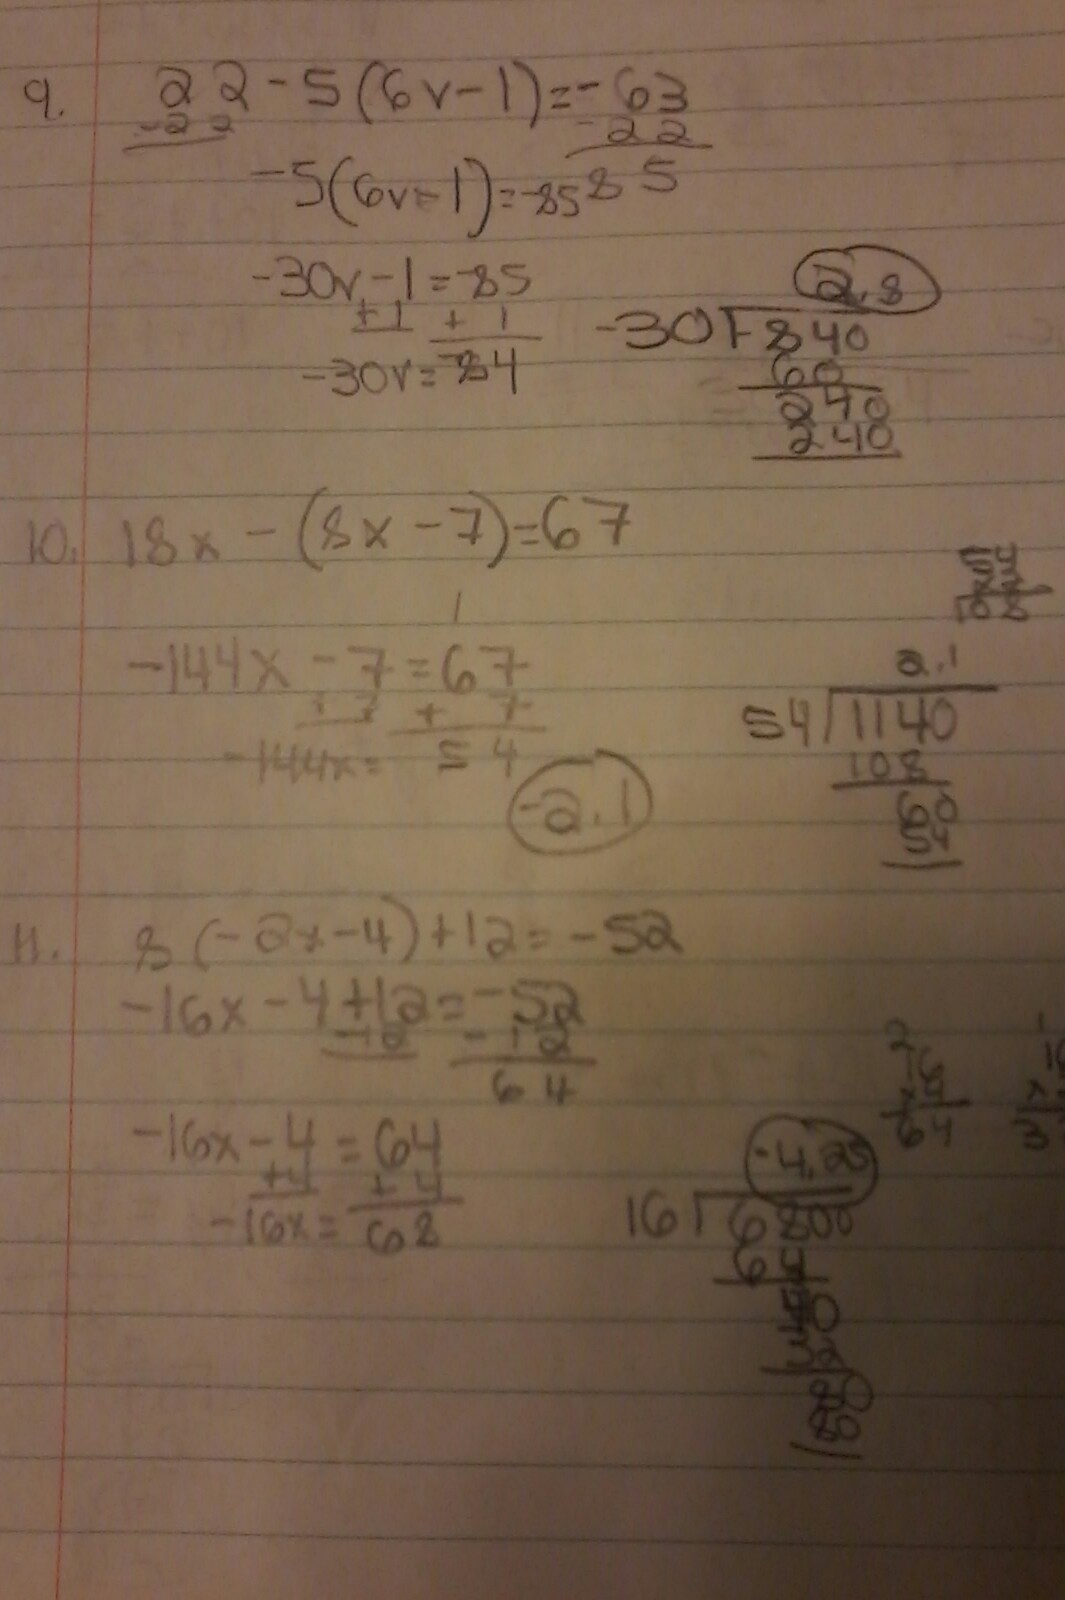 9. 22 - 5(6v - 1) = -63
-22 -22
-5(6v - 1) = -85 85
-30v - 1 = -85
+1 + 1
-30v = -84
2.8
-30 -840
60
240
240
10. 18x - (8x - 7) = 67
1
-144x - 7 = 67
+7 + 7
-144x = 54
-2.1
2.1
54 1140
108
60
54
11. 8(-2x - 4) + 12 = -52
-16x - 4 + 12 = -52
-12 - 12
64
-16x - 4 = 64
+4 + 4
-16x = 68
64
4.25
16 6800
64